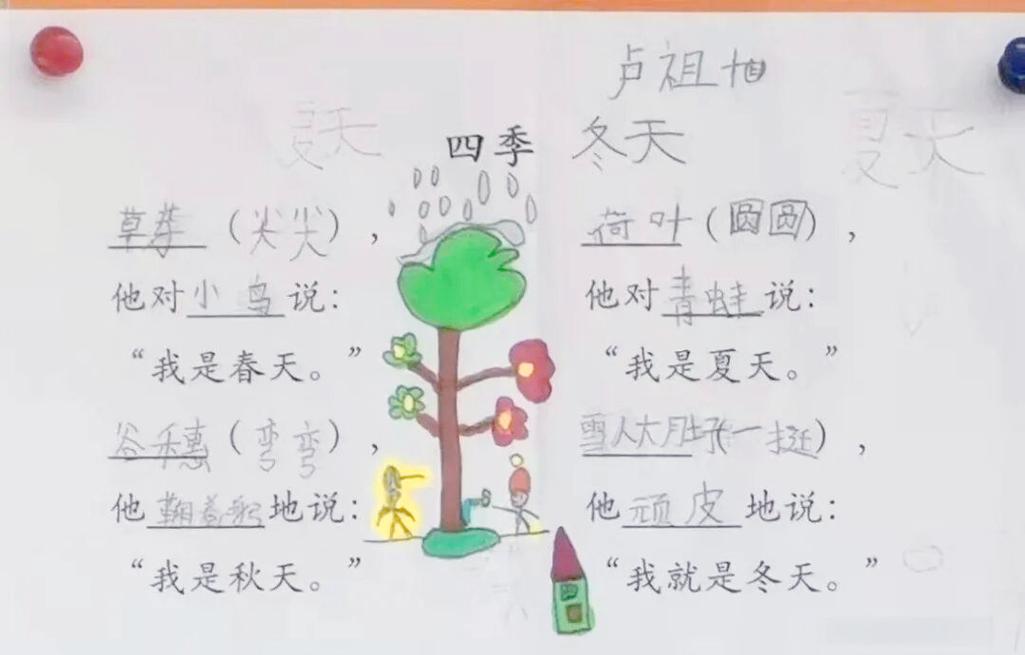 卢祖
夏天 四季 冬天 夏天
草芽（尖尖），
他对小鸟说：
“我是春天。”
荷叶（圆圆），
他对青蛙说：
“我是夏天。”
谷穗（弯弯），
他鞠着躬地说：
“我是秋天。”
雪人大肚子（一挺），
他顽皮地说：
“我就是冬天。”